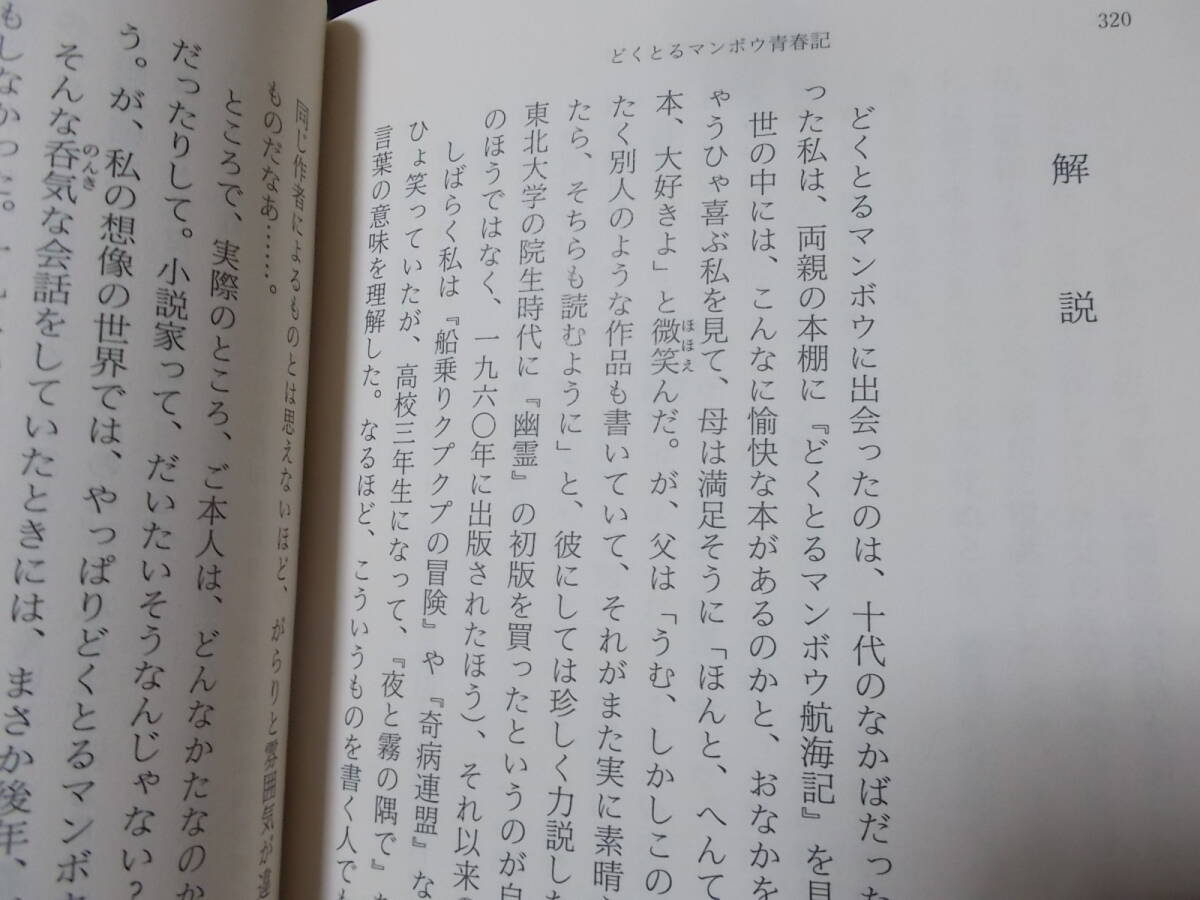 320
どくとるマンボウ青春記
解説
どくとるマンボウに出会ったのは、十代のなかばだった
った私は、両親の本棚に『どくとるマンボウ航海記』を見
世の中には、こんなに愉快な本があるのかと、おなかを
ゃうひゃ喜ぶ私を見て、母は満足そうに「ほんと、へんて
本、大好きよ」と微笑んだ。が、父は「うむ、しかしこの
ほほえ
たく別人のような作品も書いていて、それがまた実に素晴
たら、そちらも読むように」と、彼にしては珍しく力説した
東北大学の院生時代に『幽霊』の初版を買ったというのが自
のほうではなく、一九六〇年に出版されたほう)、それ以来の
しばらく私は『船乗りクプクプの冒険』や『奇病連盟』な
ひょ笑っていたが、高校三年生になって、『夜と霧の隅で』
言葉の意味を理解した。なるほど、こういうものを書く人でも
同じ作者によるものとは思えないほど、がらりと雰囲気が違
ものだなあ……。
ところで、実際のところ、ご本人は、どんなかたなのか
だったりして。小説家って、だいたいそうなんじゃない?
う。が、私の想像の世界では、やっぱりどくとるマンボ
そんな呑気な会話をしていたときには、まさか後年、
のんき
もしなかった。